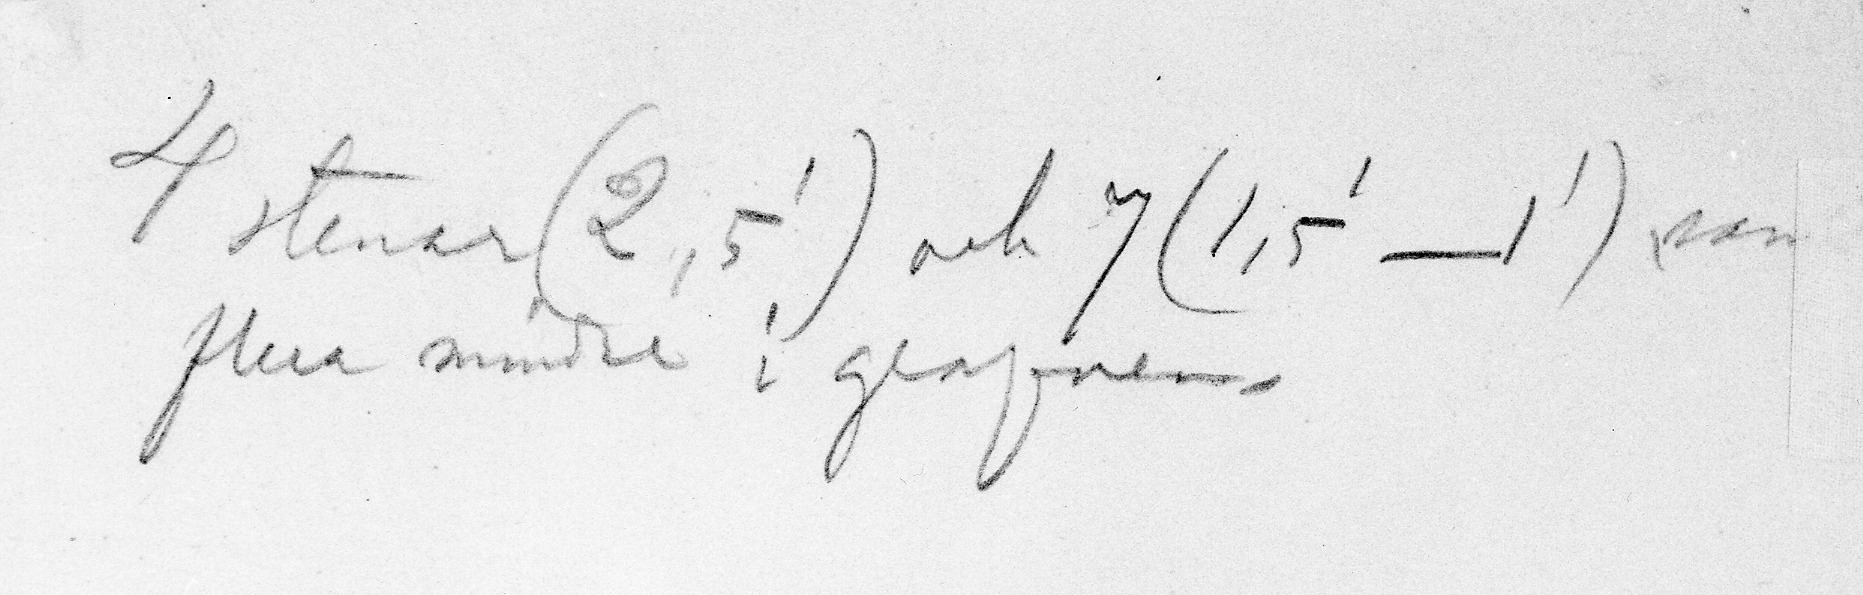 4 stenar (2,5') och 7 (1,5' — 1') sam
flera mindre i grafven.